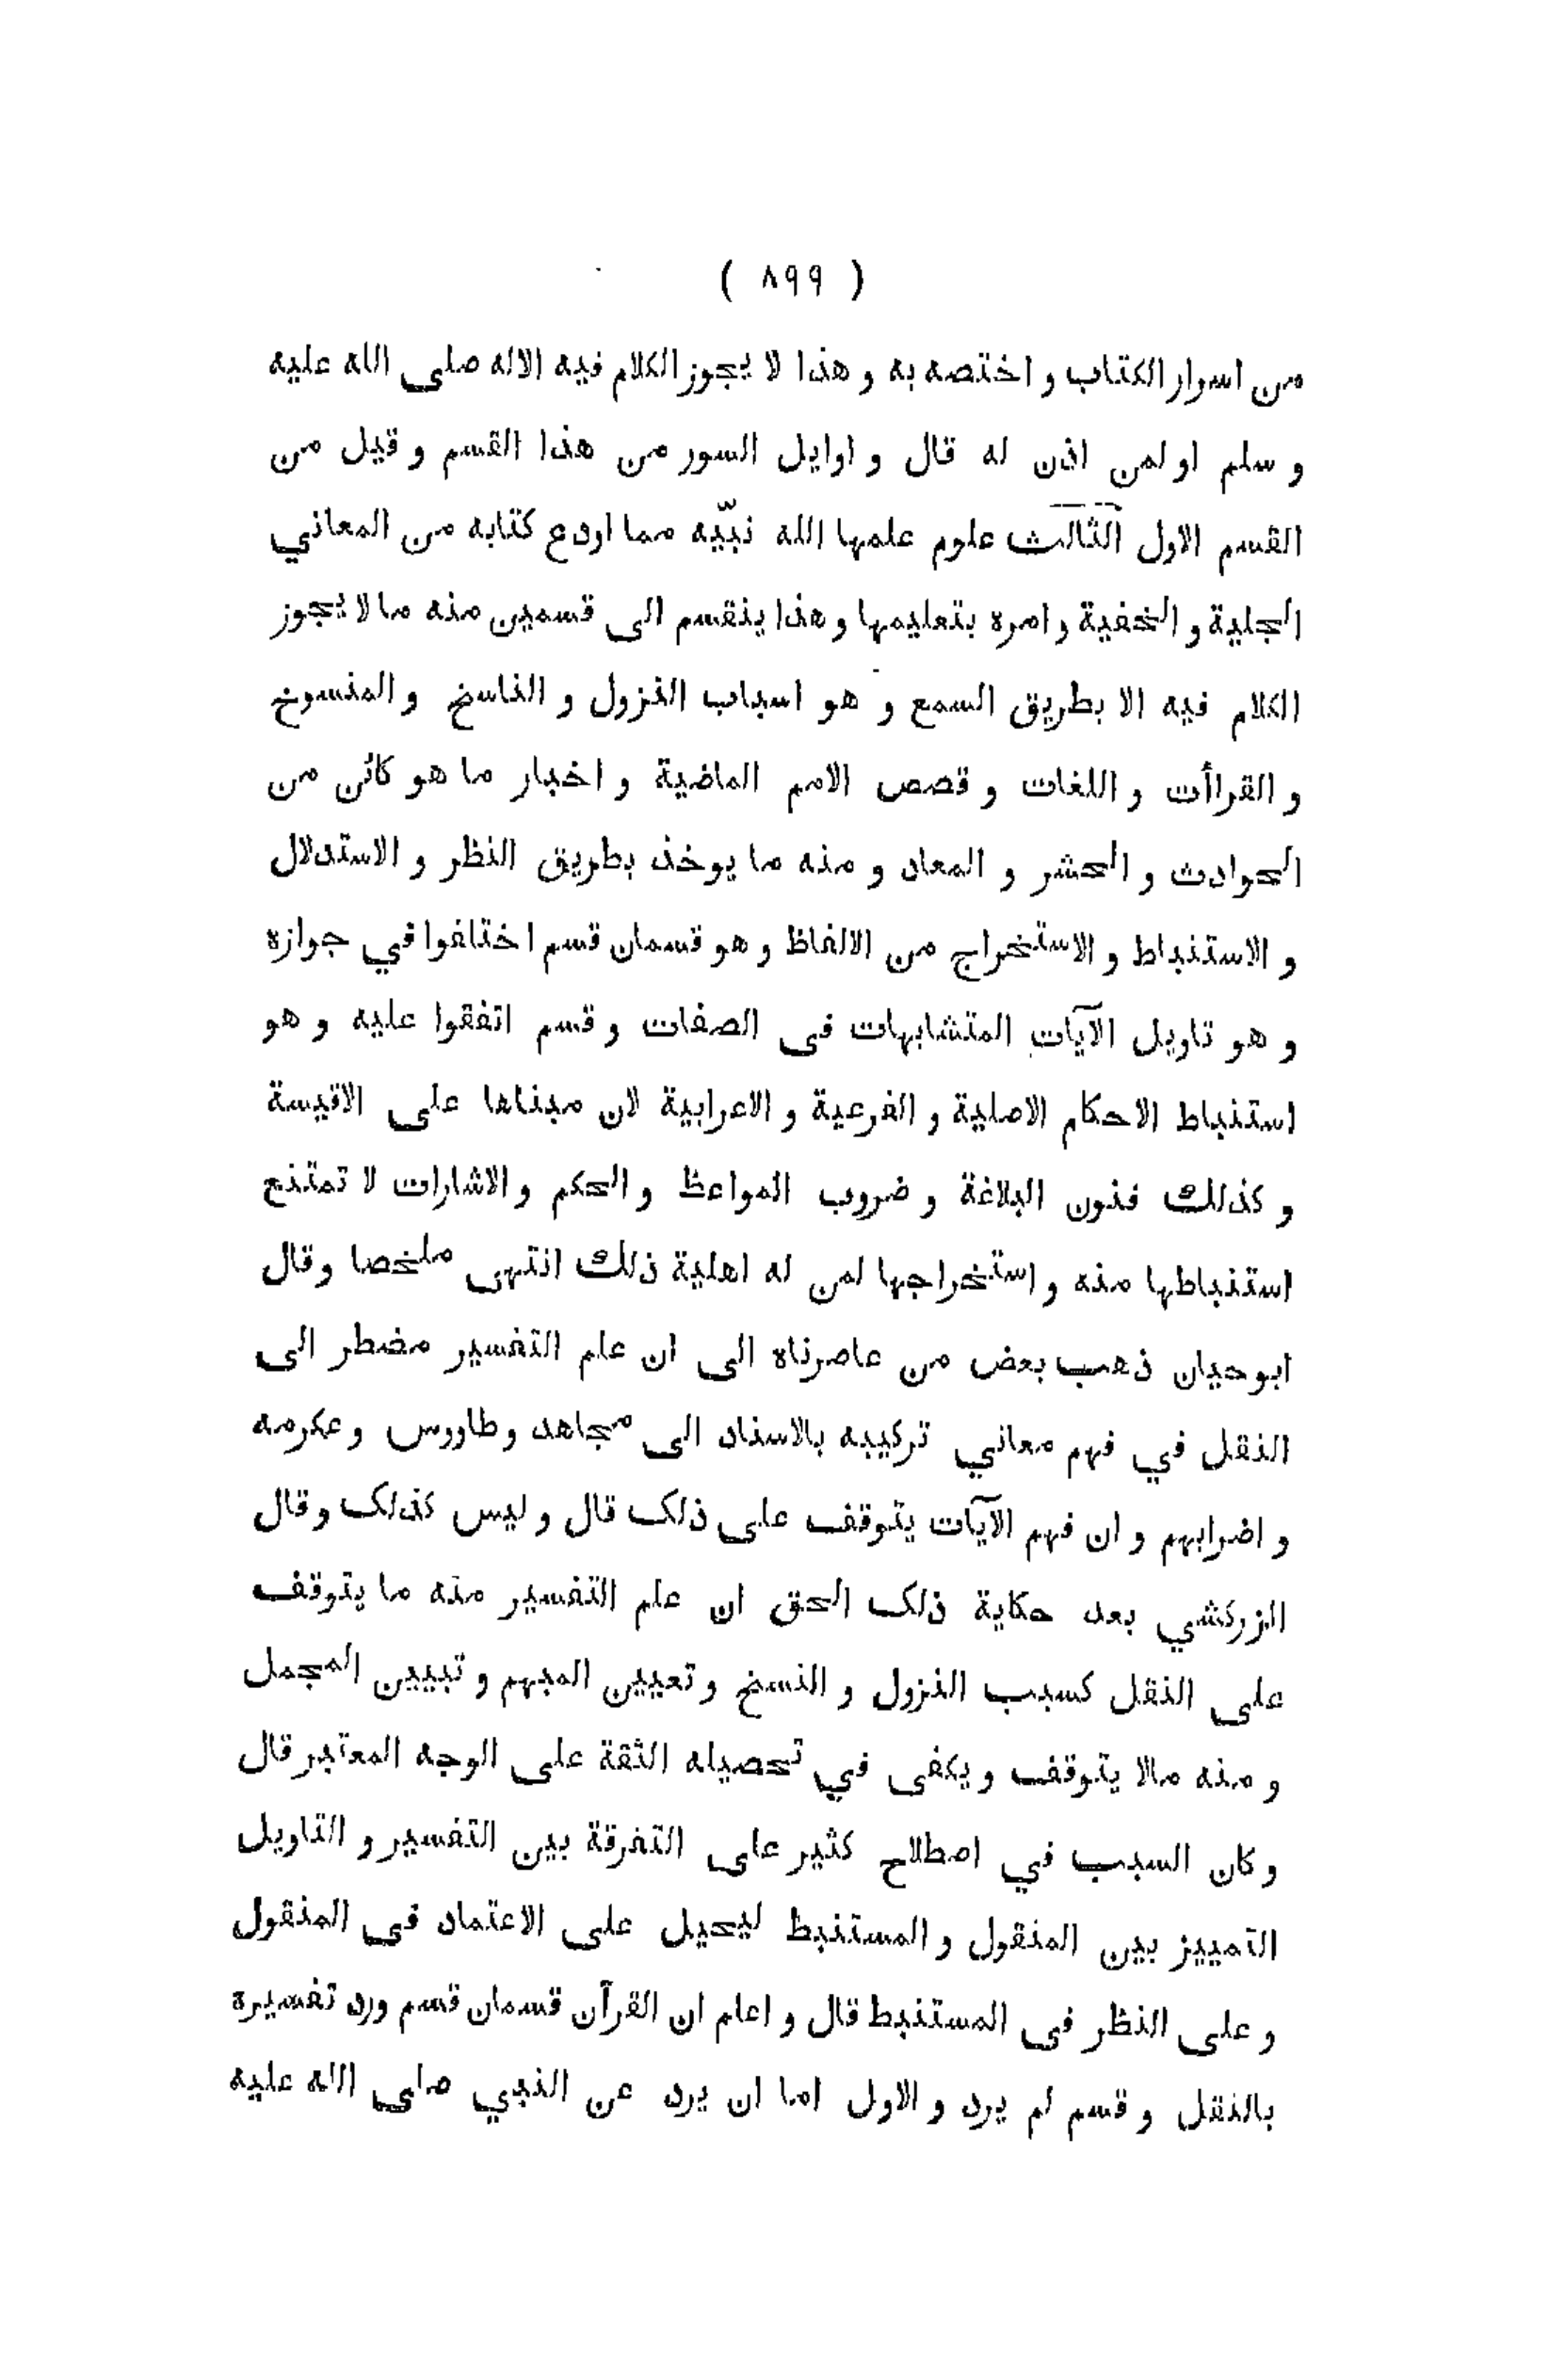 ( ٨٩٩ )
من اسرار الكتاب و اختصه به و هذا لا يجوز الكلام فيه الاله صلى الله عليه
و سلم او لمن اذن له قال و اوايل السور من هذا القسم و قيل من
القسم الاول الثالث علوم علمها الله نبيّه مما اودع كتابه من المعاني
الجلية و الخفية و امره بتعليمها و هذا ينقسم الى قسمين منه ما لا يجوز
الكلام فيه الا بطريق السمع و هو اسباب النزول و الناسخ و المنسوخ
و القراأت و اللغات و قصص الامم الماضية و اخبار ما هو كائن من
الحوادث و الحشر و المعاد و منه ما يوخذ بطريق النظر و الاستدلال
و الاستنباط و الاستخراج من الالفاظ و هو قسمان قسم اختلفوا في جوازه
و هو تاويل الآيات المتشابهات فى الصفات و قسم اتفقوا عليه و هو
استنباط الاحكام الاصلية و الفرعية و الاعرابية لان مبناها على الاقيسة
و كذلك فنون البلاغة و ضروب المواعظ و الحكم و الاشارات لا تمتنع
استنباطها منه و استخراجها لمن له اهلية ذلك انتهى ملخصا وقال
ابوحيان ذهب بعض من عاصرناه الى ان علم التفسير مضطر الى
النقل في فهم معاني تركيبه بالاسناد الى مجاهد وطاووس وعكرمه
و اضرابهم و ان فهم الآيات يتوقف على ذلک قال و ليس كذلک وقال
الزركشي بعد حكاية ذلک الحق ان علم التفسير منه ما يتوقف
على النقل كسبب النزول و النسخ و تعيين المبهم و تبيين المجمل
و منه مالا يتوقف و يكفى في تحصيله الثقة على الوجه المعتبر قال
و كان السبب في اصطلاح كثير على التفرقة بين التفسير و التاويل
التمييز بين المنقول و المستنبط ليحيل على الاعتماد فى المنقول
و على النظر فى المستنبط قال و اعلم ان القرآن قسمان قسم ورد تفسيره
بالنقل و قسم لم يرد و الاول اما ان يرد عن النبي صلى الله عليه